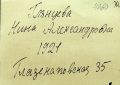 Глянцева
Нина Александровна
1921
Глазенаповская 35